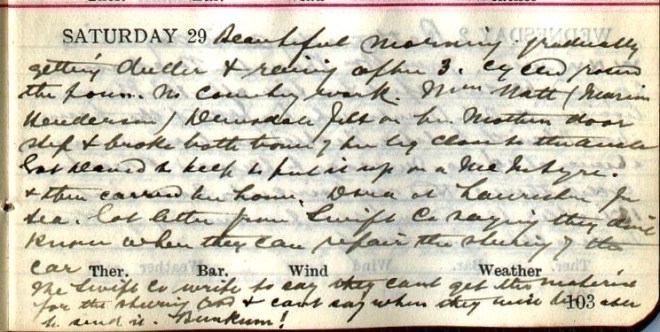 SATURDAY 29 Beautiful morning gradually
getting duller & raining after 3. Cycled round
the town. No country work. Mrs Natt (Marion
Henderson) Deansdale fell on her Mothers door
step & broke both bones of her leg close to the ankle
Got to help to put it up on a McIntyre.
& then carried her home. at for
tea. Got letter from Swift Co saying they don't
know when they can repair the steering of the
car
Ther. Bar. Wind Weather
The Swift Co write to say they cant get the material
for the steering & cant say when they will be able
to send it. Bunkum!
103